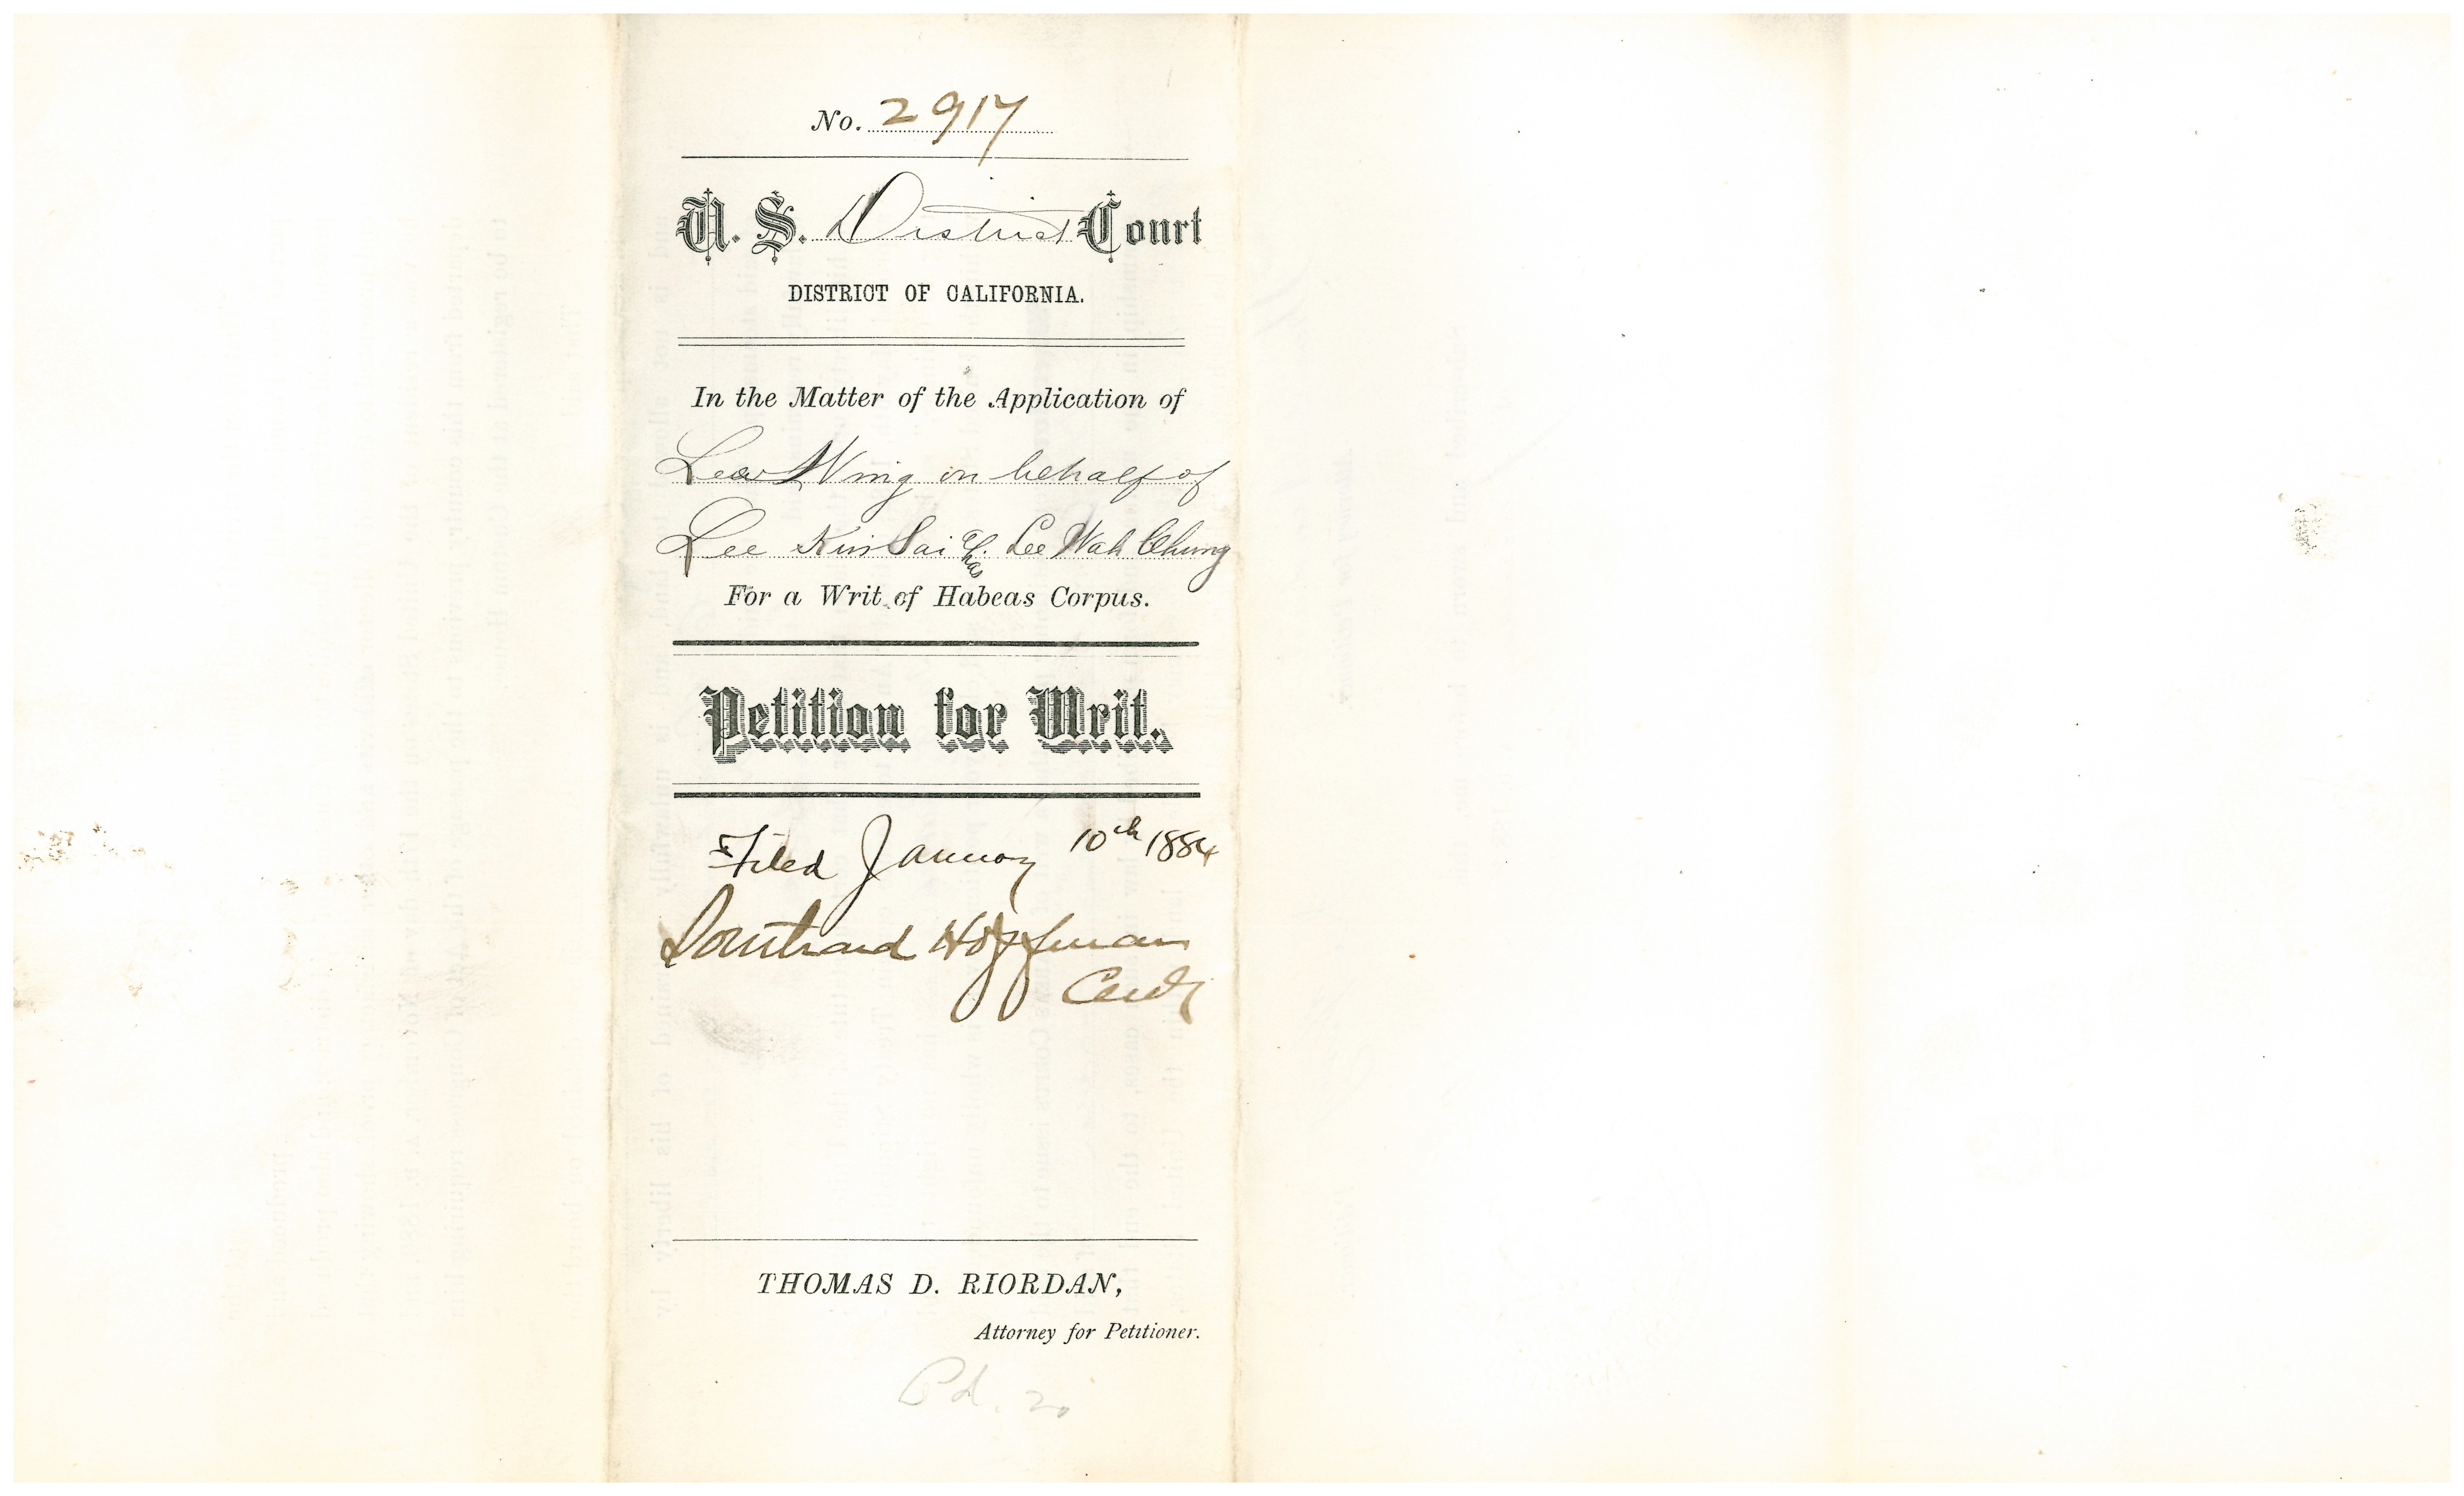 No. 2917
U. S. District Court
DISTRICT OF CALIFORNIA.
In the Matter of the Application of
Lew Wing on behalf of
Lee Kin Sai & Lee Wah Chung
has
For a Writ of Habeas Corpus.
Petition for Writ.
Filed January 10th 1884
Southard Hoffman
Clerk
THOMAS D. RIORDAN,
Attorney for Petitioner.
Pd.